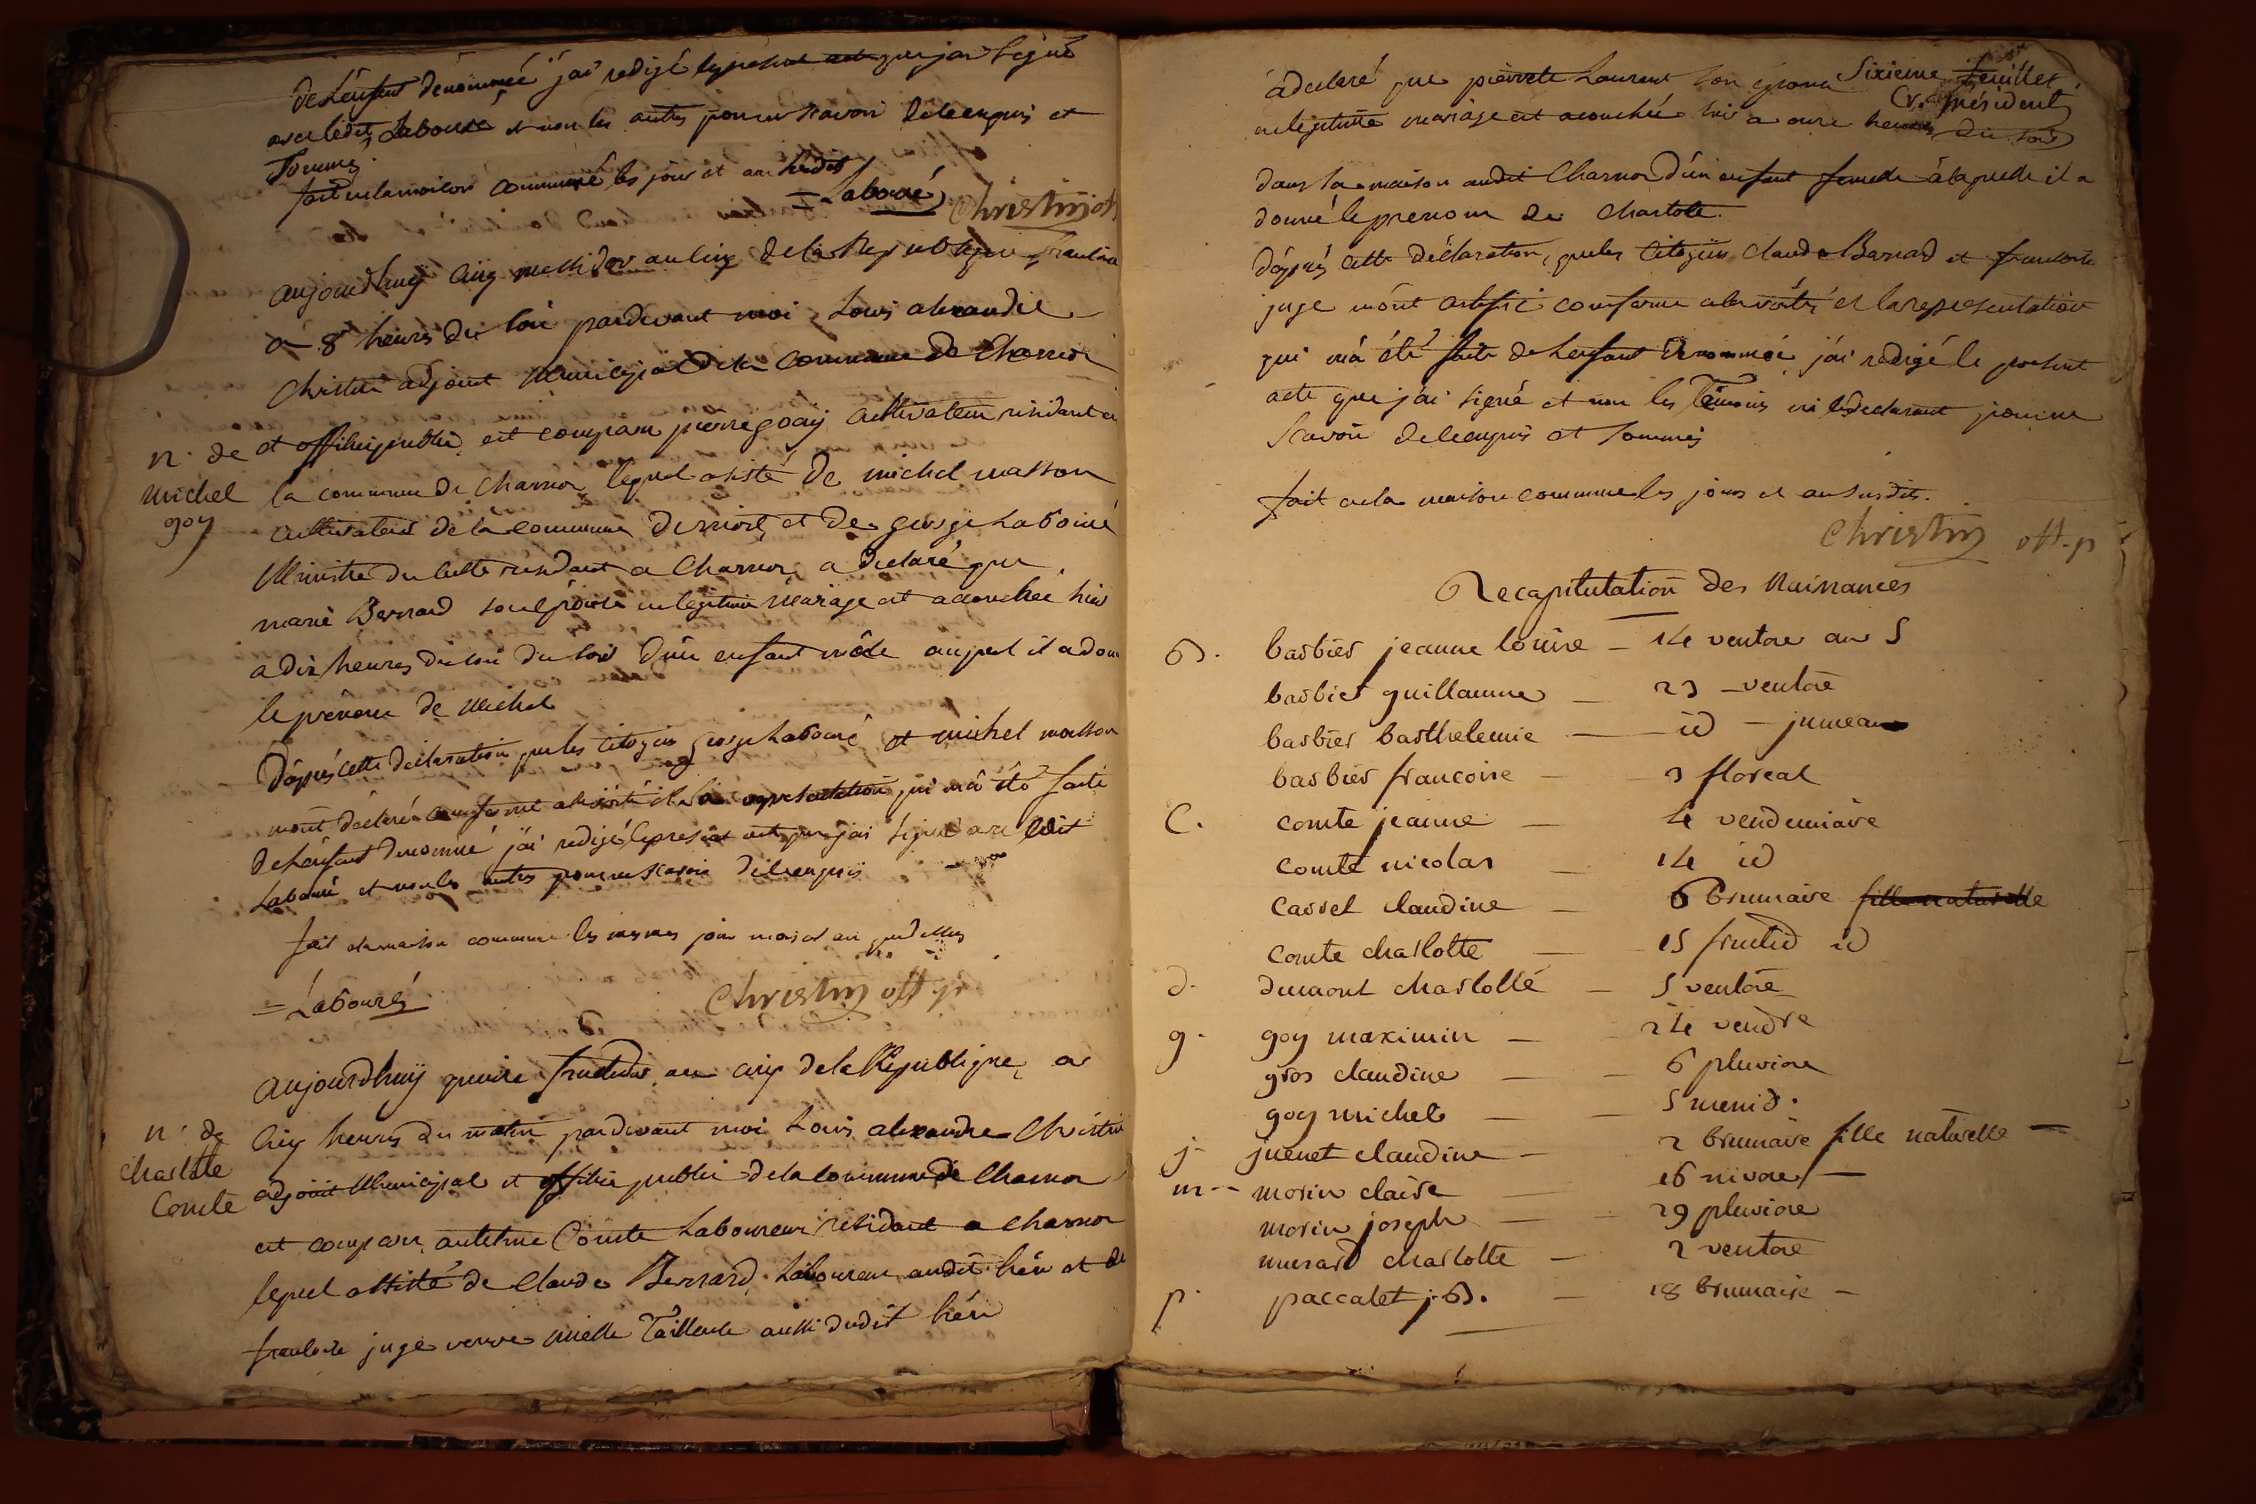 de L'enfant dénommée j'ai redigé le présent acte que jai signé
avec ledit Labouré et non les autres pour ne scavoir de ce enquis et
sommés
fait en la maison commune les jour et an susdits
= Labouré Christin off
aujourdhuy cinq messidor an cinq de la Republique francaise
a 8 heures du soir pardevant moi Louis alexandre
Christin adjoint Municipal de la commune de Charnoz
n. de
michel
goy
et officier public est comparu pierre goy cultivateur residant a
la commune de Charnoz lequel asisté de michel masson
cultivateur de la commune de niort et de george Labouré
Ministre du culte residant a Charnoz a declaré que
marie Bernard son épouse en legitime mariage est acouchée hier
a dix heures du soir d'un enfant mâle auquel il a don
le prénom de Michel
D'après cette déclaration que les citoyens george Labouré et michel masson
m'ont déclaré conforme a la vérité et la representation qui m'a été faite
de L'enfant denommé j'ai redigé le present acte que jai signé avec ledit
Labouré et non les autres pour ne scavoir de ce enquis
fait en la maison commune les memes jour mois et an que dessus
= Labouré Christin off. p
aujourdhuy quinze fructidor an cinq de la Republique, a
n. de
charlote
Comte
cinq heures du matin pardevant moi Louis alexandre Christin
adjoint Municipal et officier public de la commune de Charnoz
est comparu antelme Comte Laboureur residant a charnoz
lequel assisté de Claude Bernard Laboureur audit lieu et de
francoise juge veuve taillente aussi dudit lieu
Sixieme feuillet.
President
a declaré que pierrete Laurent son épouse
en legitime mariage est acouchée hier a onze heures du soir
dans sa maison audit Charnoz d'un enfant femelle à laquelle il a
donné le prenom de Charlote.
D'après cette Déclaration, que les Citoyens Claude Barnard et francoise
juge m'ont certifié conforme a la vérité et la representation
qui m'a été faite de Lenfant dénommée j'ai redigé le present
acte que j'ai signé et non les Témoins ni le declarant pour ne
scavoir de ce enquis et sommés
fait en la maison commune les jours et an susdits.
Christin off. p
Recapitulation des Naissances
B. barbier jeanne louise - 14 ventose an 5
barbier guillaume - 23 - ventose
barbier barthelemie - id - jumeaux
barbier francoise - 3 floreal
C. comte jeanne - 4 vendemiaire
comte nicolas - 14 id
cassel claudine - 6 brumaire fille naturelle
comte charlotte - 15 fructid id
d. dumont charlotte - 5 ventose
g. goy maximin - 24 vendre
gros claudine - 6 pluviose
goy michel - 5 messid.
j. juenet claudine - 2 brumaire fille naturelle -
m - morin claire - 16 nivose -
morin joseph - 29 pluviose
musard charlotte - 2 ventose
p. paccalet j. B. - 18 brumaire -